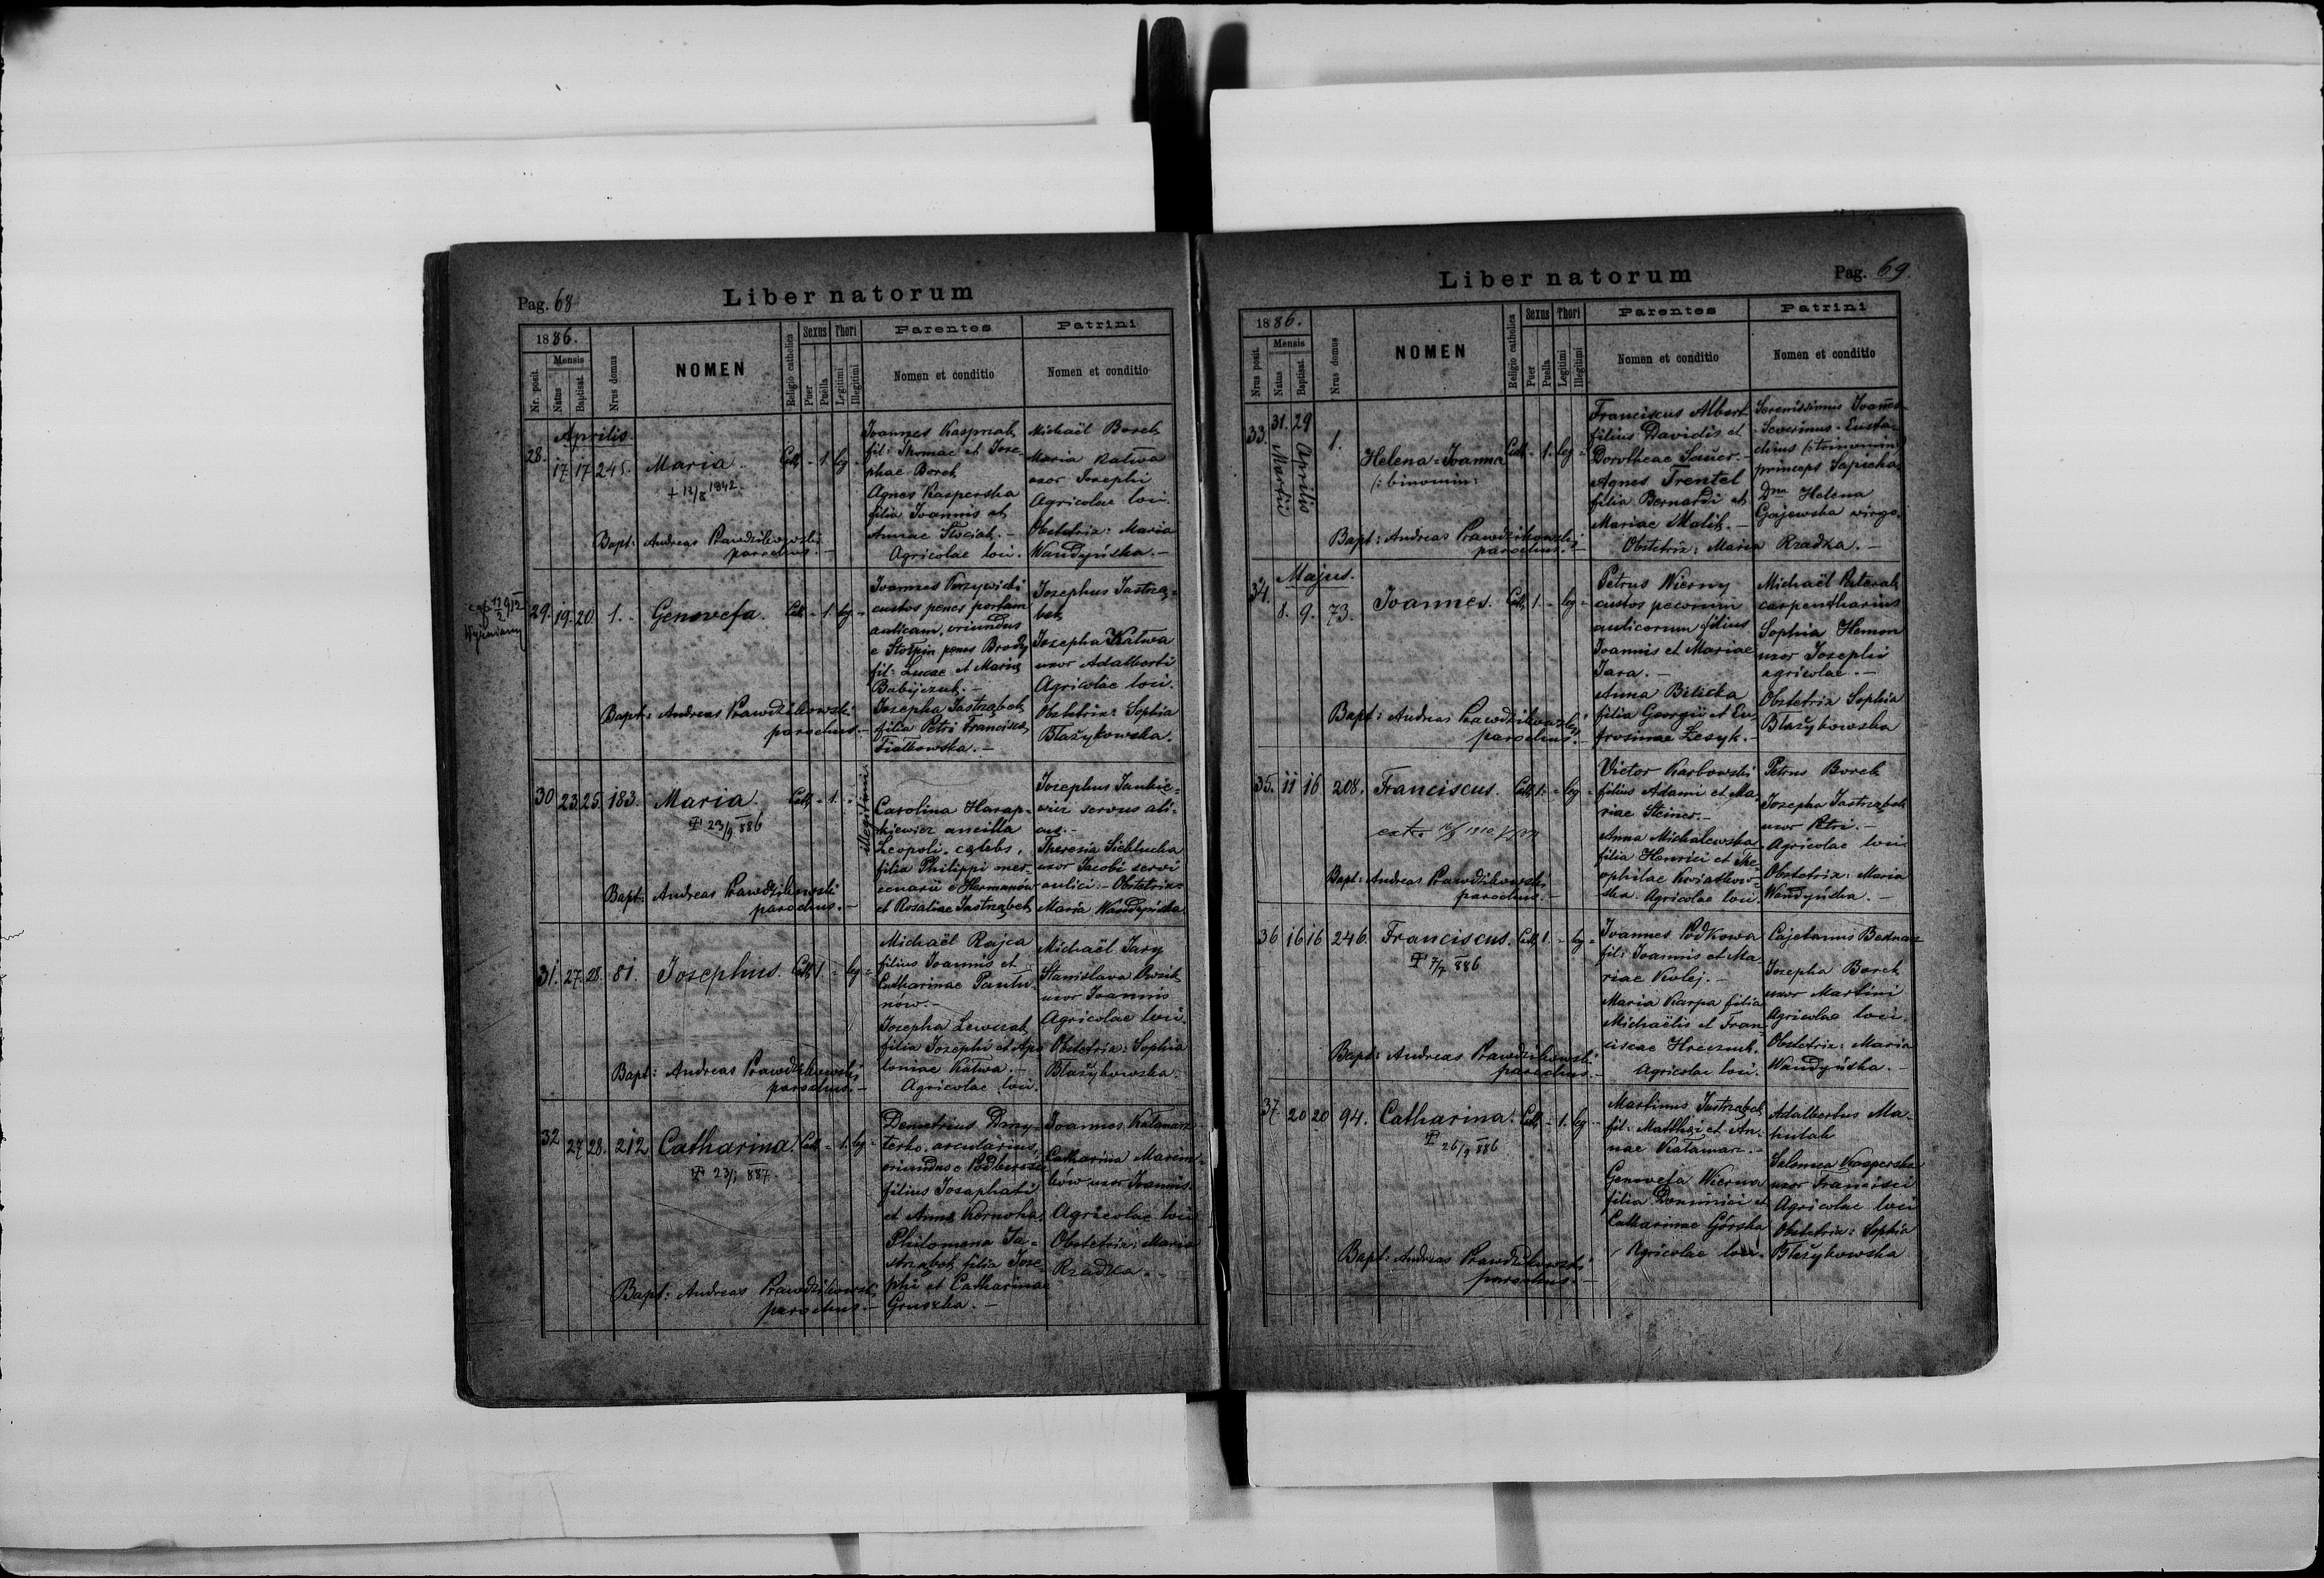 Pag. 68
Liber natorum
1886.
Nr. posit.
Mensis
Natus
Baptisat.
Nrus domus
NOMEN
Religio catholica
Sexus
Puer
Puella
Thori
Legitimi
Illegitimi
Parentes
Nomen et conditio
Patrini
Nomen et conditio
Aprilis.
28. 17 17 245. Maria. Cath - 1. leg -
+ 13/8 1942.
Bapt: Andreas Prawdzikowski
parochus. -
Joannes Kasprzak
fil: Thomae et Jose-
phae Borek
Agnes Kasperska
filia Joannis et
Annae Stociak. -
Agricolae loci.
Michaël Borek
Maria Kalwa
uxor Josephi
Agricolae loci.
Obstetrix: Maria
Wandyńska. -
29. 19. 20. 1. - Genovefa. Cath - 1. leg -
Bapt: Andreas Prawdzikowski
parochus. -
Joannes Krzywicki
custos penes portam
aulicam, oriundus
e Stołpin penes Brody
fil: Lucae et Mariae
Babijczuk. -
Josepha Jastrząbek
filia Petri Francisca
Fiałkowska. -
Josephus Jastrzą-
bek
Josepha Kalwa
uxor Adalberti
Agricolae loci.
Obstetrix: Sophia
Błażykowska.
30 23. 25. 183. Maria. Cath - 1. - illegitimi
23/9 886
Bapt: Andreas Prawdzikowski
parochus. -
Carolina Harap-
kiewicz ancilla
Leopoli. caelebs,
filia Philippi mer-
cenarii e Hermanów
et Rosaliae Jastrząbek
Josephus Jankie-
wicz servus auli-
cus. -
Theresia
uxor Jacobi servi
aulici. - Obstetrix:
Maria Wandyńska
31. 27. 28. 81. Josephus. Cath 1. - leg -
Bapt: Andreas Prawdzikowski
parochus. -
Michaël Rajca
filius Joannis et
Catharinae Pantu-
nów. -
Josepha Lewczak
filia Josephi et Apo
loniae Kalwa. -
Agricolae loci.
Michaël Jary
Stanislava
uxor Joannis
Agricolae loci.
Obstetrix: Sophia
Błażykowska.
32 27 28. 212 Catharina. Cath - 1. leg -
23/1 887.
Bapt: Andreas Prawdzikowski
parochus. -
Demetrius Dmy-
terko. arcularius,
oriundus e
filius Josaphati
et Annae Kernoha,
Philomena Ja-
strząbek filia Jose-
phi et Catharinae
Gruszka. -
Joannes Katamarz
Catharina Marcin-
ków uxor Joannis.
Agricolae loci
Obstetrix: Maria
Rzadka. -
Liber natorum
Pag. 69.
1886.
Nrus posit.
Mensis
Natus
Baptisat.
Nrus domus
NOMEN
Religio catholica
Sexus
Puer
Puella
Thori
Legitimi
Illegitimi
Parentes
Nomen et conditio
Patrini
Nomen et conditio
33. 31. Martii 29 Aprilis 1. Helena-Joanna Cath - 1. leg -
(: binomin:
Bapt: Andreas Prawdzikowski
parochus. -
Franciscus Albert
filius Davidis et
Dorotheae Sauer. -
Agnes Trentel
filia Bernardi et
Mariae Malik. -
Serenissimus Joannes-
Severinus-Eusta-
chius (: trinomin:)
princeps Sapieha
Dna Helena
Gajewska virgo.
Obstetrix: Maria Rzadka. -
Majus.
34. 8. 9. 73. Joannes. Cath 1. - leg -
Bapt: Andreas Prawdzikowski
parochus. -
Petrus Wierny
custos pecorum
aulicorum filius
Joannis et Mariae
Jara. -
Anna Bilicka
filia Georgii et Eu-
frosinae Lesyk. -
Michaël
carpentharius
Sophia Hemon
uxor Josephi
agricolae. -
Obstetrix Sophia
Błażykowska
35. 11 16 208. Franciscus. Cath 1. - leg -
Bapt: Andreas Prawdzikowski
parochus. -
Victor Karbowski
filius Adami et Ma-
riae Steiner. -
Anna Michalewska
filia Henrici et The-
ophilae Kwiatkow-
ska. Agricolae loci.
Petrus Borek
Josepha Jastrząbek
uxor Petri. -
Agricolae loci
Obstetrix: Maria
Wandyńska. -
36 16 16 246. Franciscus. Cath 1. - leg -
7/7 886
Bapt: Andreas Prawdzikowski
parochus. -
Joannes Podkowa
fil: Joannis et Ma
riae Kolej. -
Maria Karpa filia
Michaëlis et Fran-
ciscae Hreczuk.
Agricolae loci.
Cajetanus Bednarz
Josepha Borek
uxor Martini
Agricolae loci.
Obstetrix: Maria
Wandyńska. -
37. 20 20 94. Catharina. Cath - 1. leg -
26/9 886
Bapt: Andreas Prawdzikowski
parochus. -
Martinus Jastrząbek
fil: Matthaei et An-
nae Katamarz. -
Genovefa Wierna
filia Dominici et
Catharinae Górska
Agricolae loci.
Adalbertus Ma-
kulak
Salomea Kasperska
uxor Francisci
Agricolae loci
Obstetrix: Sophia
Błażykowska